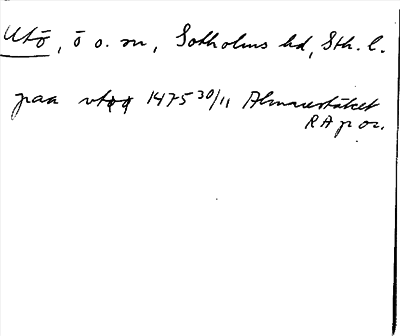 Utö, ö o. sn, Sotholms hd, Sth. l.
paa vtøø 1475 30/11 Almarestäket
RA p or.